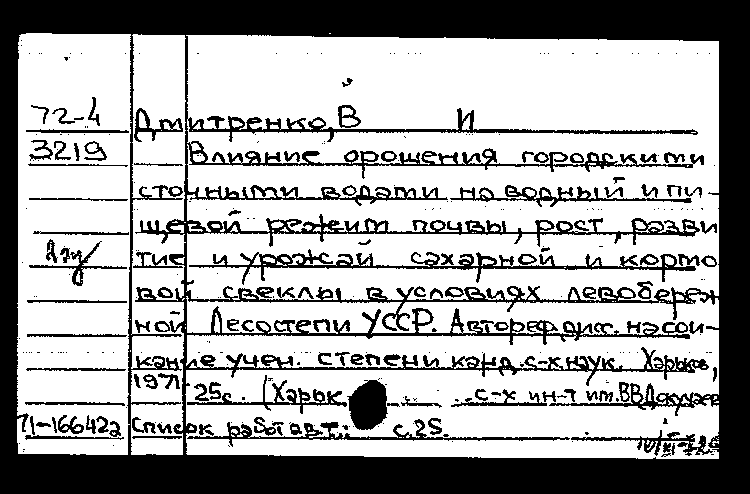 72-4 Дмитренко, В И
3219 Влияние орошения городскими
сточными водами на водный и пи-
щевой режим почвы, рост, разви
тие и урожай сахарной и кормо
вой свеклы в условиях левобереж
ной Лесостепи УССР. Автореф. дисс. на сои-
кание учен. степени канд. с-х наук. Харьков,
1971 25с. (Харьк с-х ин-т им. В.В. Докучаев
71-16642а Список работ авт.: с. 25.